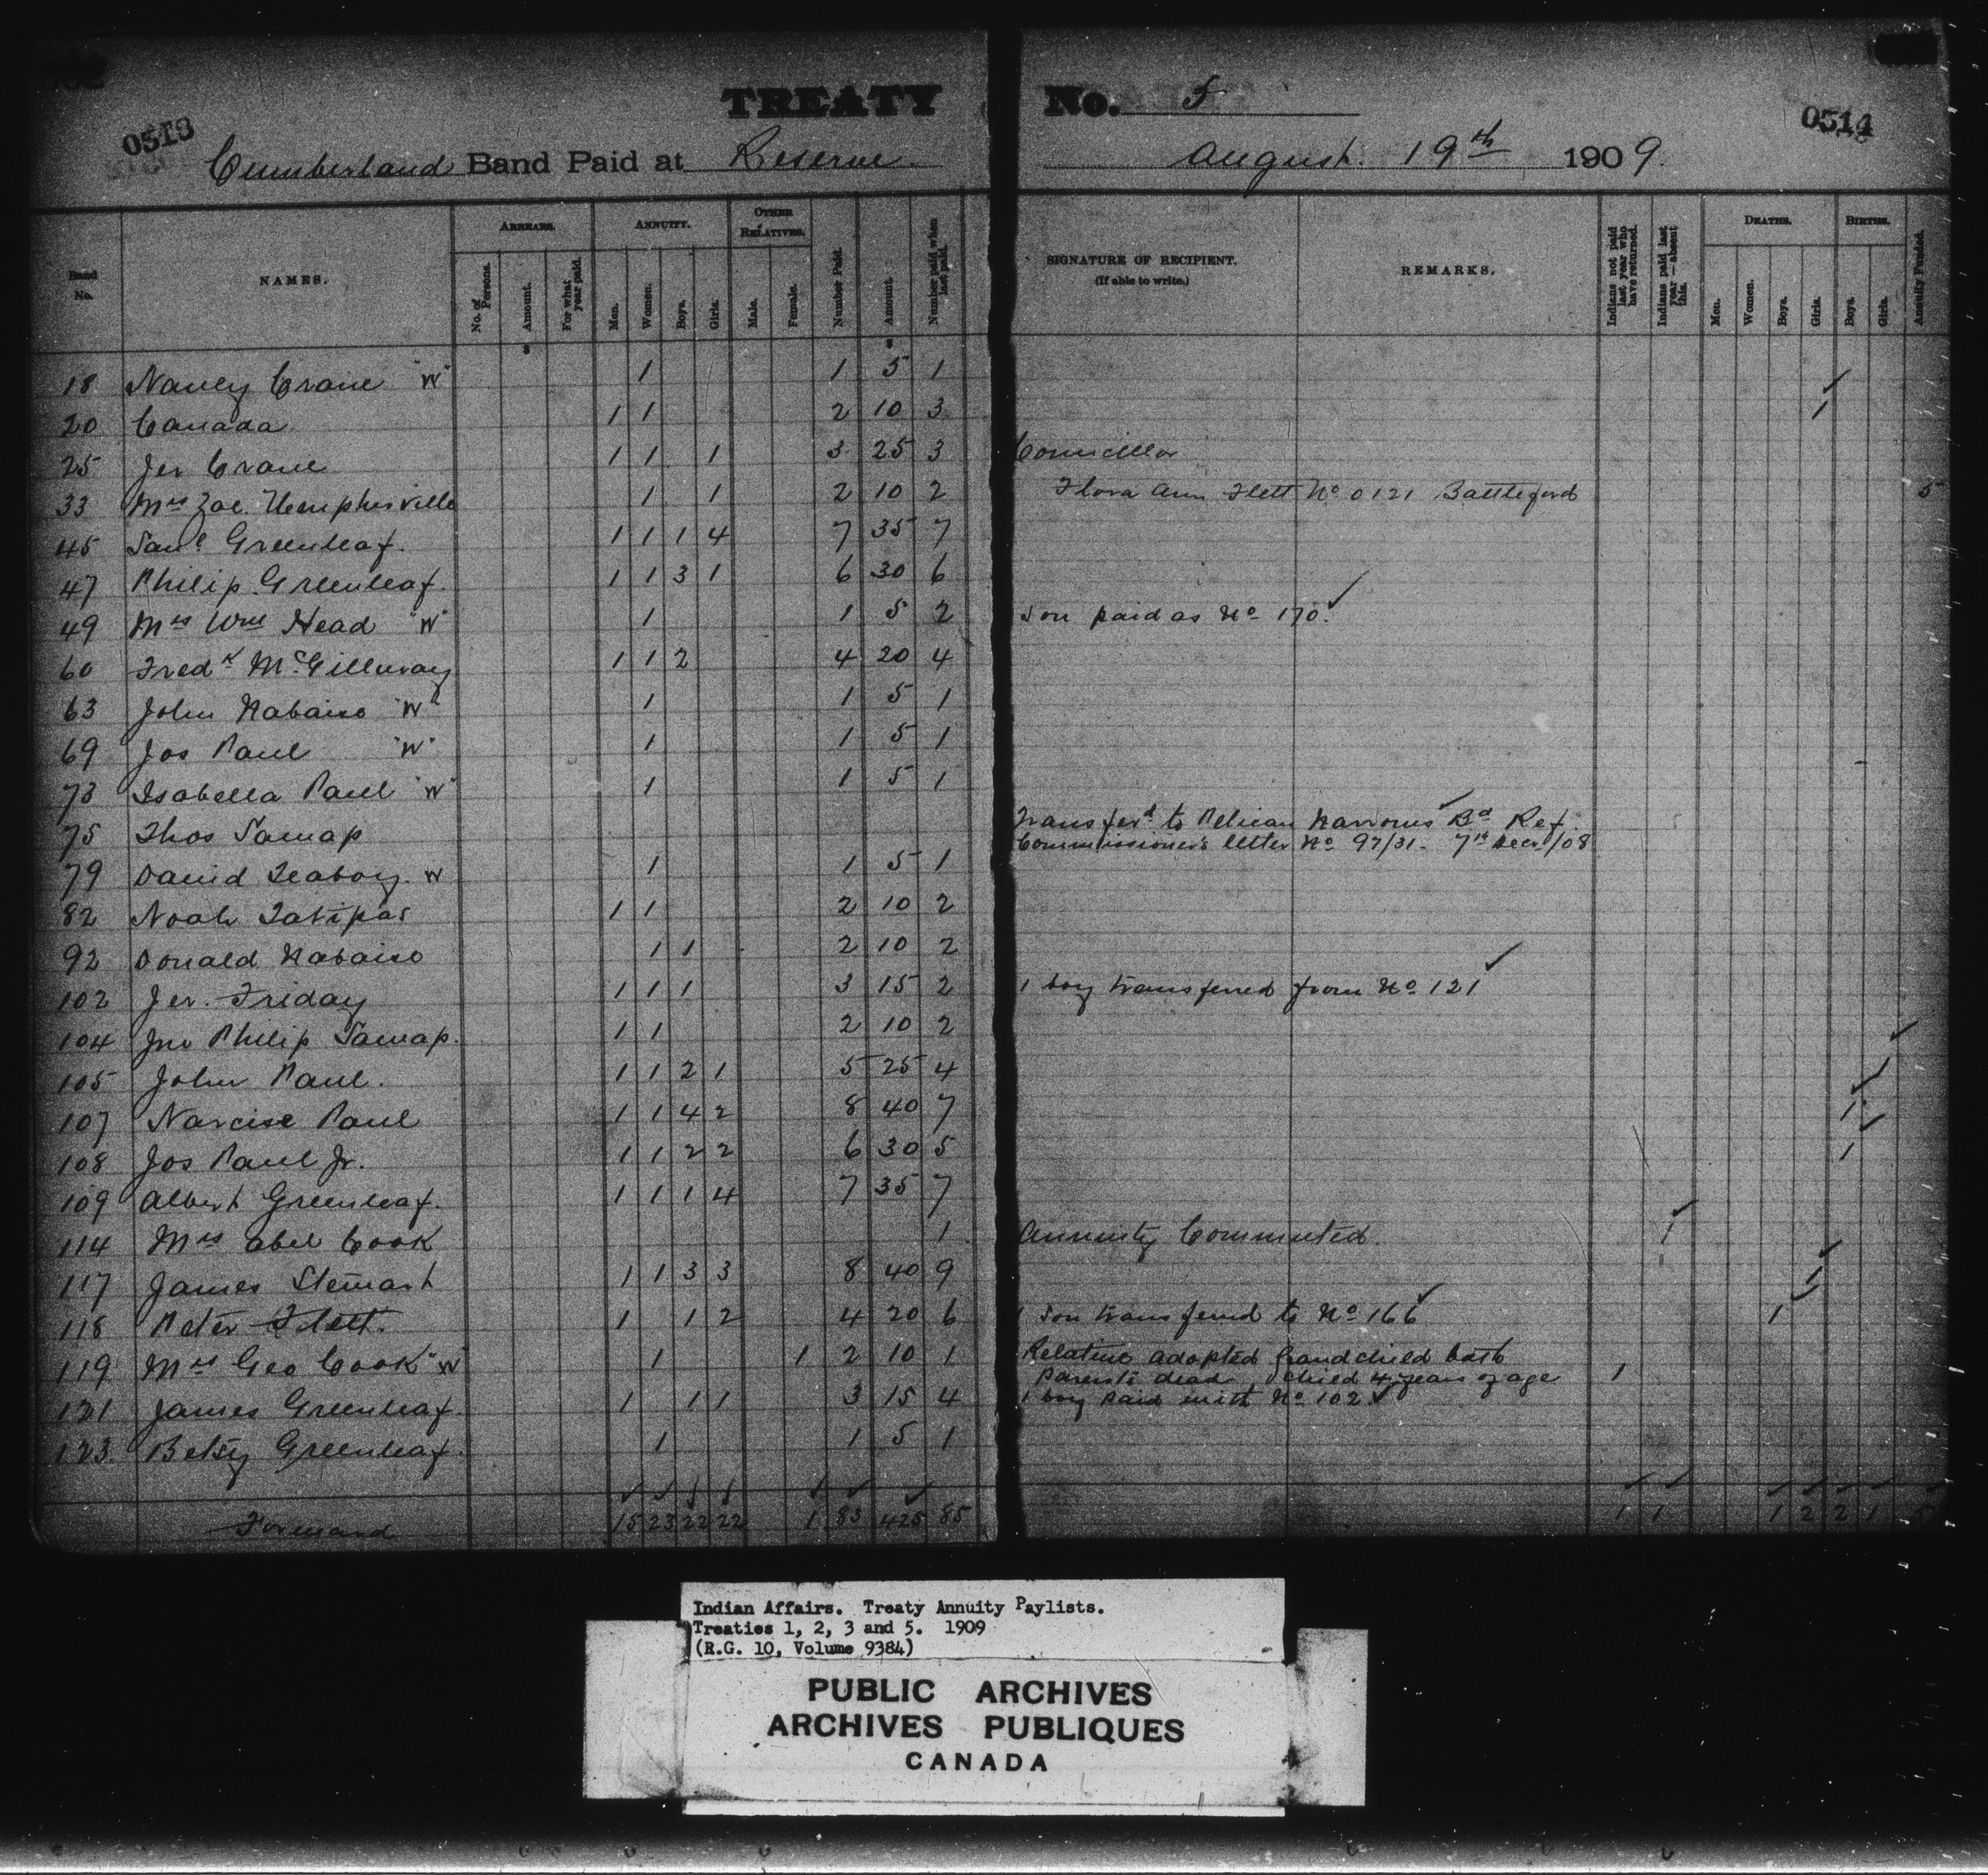 TREATY No. 5
0513 0514
Cumberland Band Paid at Reserve. August. 19th 1909.
Band No. NAMES. ARREARS. No. of Persons. Amount. For what year paid. ANNUITY. Men. Women. Boys. Girls. OTHER RELATIVES. Male. Female. Number Paid. Amount. Number paid when last paid. SIGNATURE OF RECIPIENT. (If able to write.) REMARKS. Indians not paid last year who have returned. Indians paid last year—absent this. DEATHS. Men. Women. Boys. Girls. BIRTHS. Boys. Girls. Annuity Funded.
18 Nancy Crane "W" 1 1 5 1
20 Canada 1 1 2 10 3 1
25 Jer Crane 1 1 1 3 25 3 Councillor
33 Mrs Zoe. 1 1 2 10 2 Flora Ann Flett No 0121 Battleford 5
45 Saml Greenleaf. 1 1 1 4 7 35 7
47 Philip Greenleaf. 1 1 3 1 6 30 6
49 Mrs Wm Head "W" 1 1 5 2 Son paid as No 170.
60 Fredk McGillivray 1 1 2 4 20 4
63 John Nabaiso "W" 1 1 5 1
69 Jos Paul "W" 1 1 5 1
73 Isabella Paul "W" 1 1 5 1
75 Thos Samap Transferd to Pelican Narrows Bd Ref.
Commissioner's letter No 97/31. 7th Decr/08
79 David Seaboy. W 1 1 5 1
82 Noah Tatipas 1 1 2 10 2
92 Donald Nabaiso 1 1 2 10 2
102 Jer. Friday 1 1 1 3 15 2 1 boy transferred from No 121
104 Jno Philip Samap. 1 1 2 10 2
105 John Paul. 1 1 2 1 5 25 4 1
107 Narcise Paul 1 1 4 2 8 40 7 1
108 Jos Paul Jr. 1 1 2 2 6 30 5 1
109 Albert Greenleaf. 1 1 1 4 7 35 7
114 Mrs Abel Cook 1 Annuity Commuted. 1
117 James Stewart 1 1 3 3 8 40 9 1
118 Peter Flett. 1 1 2 4 20 6 1 Son transferred to No 166 1
119 Mrs Geo Cook "W" 1 1 2 10 1 Relative adopted Grandchild both
Parents dead, child 4 years of age 1
121 James Greenleaf. 1 1 1 3 15 4 1 boy paid with No 102.
123. Betsy Greenleaf. 1 1 5 1
Forward 15 23 22 22 1 83 425 85 1 1 1 2 2 1 5
Indian Affairs. Treaty Annuity Paylists.
Treaties 1, 2, 3 and 5. 1909
(R.G. 10, Volume 9384)
PUBLIC ARCHIVES
ARCHIVES PUBLIQUES
CANADA